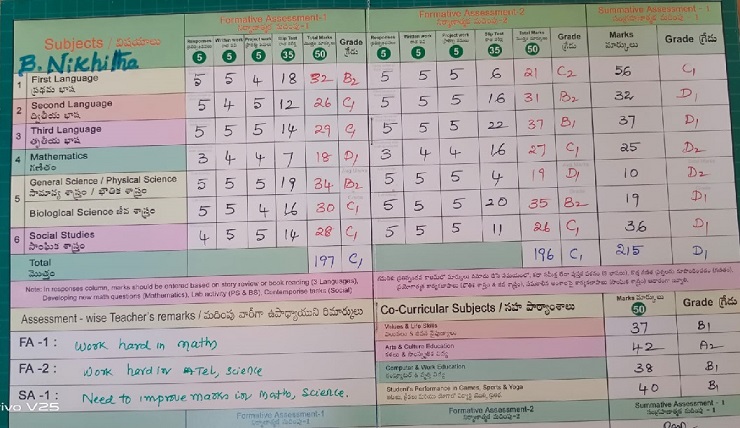 Formative Assessment-1 Formative Assessment-2 Summative Assessment - 1
Subjects / విషయాలు Responses Written work Project work Slip Test Total Marks Grade గ్రేడు Responses Written work Project work Slip Test Total Marks Grade గ్రేడు Marks మార్కులు Grade గ్రేడు
5 5 5 35 50 5 5 5 35 50
B. Nikhitha
1 First Language ప్రథమ భాష 5 5 4 18 32 B2 5 5 5 6 21 C2 56 C1
2 Second Language ద్వితీయ భాష 5 4 5 12 26 C1 5 5 5 16 31 B2 32 D1
3 Third Language తృతీయ భాష 5 5 5 14 29 C1 5 5 5 22 37 B1 37 D1
4 Mathematics గణితం 3 4 4 7 18 D1 3 4 4 16 27 C1 25 D2
5 General Science / Physical Science సామాన్య శాస్త్రం / భౌతిక శాస్త్రం 5 5 5 19 34 B2 5 5 5 4 19 D1 10 D2
Biological Science జీవ శాస్త్రం 5 5 4 16 30 C1 5 5 5 20 35 B2 19 D1
6 Social Studies సాంఘిక శాస్త్రం 4 5 5 14 28 C1 5 5 5 11 26 C1 36 D1
Total మొత్తం 197 C1 196 C1 215 D1
Note: In responses column, marks should be entered based on story review or book reading (3 Languages),
Developing new math questions (Mathematics), Lab activity (PS & BS), Contemporary talks (Social)
Assessment - wise Teacher's remarks / మదింపు వారీగా ఉపాధ్యాయుని రిమార్కులు
FA -1 : Work hard in maths
FA -2 : Work hard in Tel, science
SA -1 : Need to improve marks in Maths, Science.
Co-Curricular Subjects / సహ పాఠ్యాంశాలు Marks మార్కులు 50 Grade గ్రేడు
Values & Life Skills 37 B1
Arts & Culture Education 42 A2
Computer & Work Education 38 B1
Student's Performance in Games, Sports & Yoga 40 B1
Formative Assessment - 1 Formative Assessment-2 Summative Assessment - 1
V25